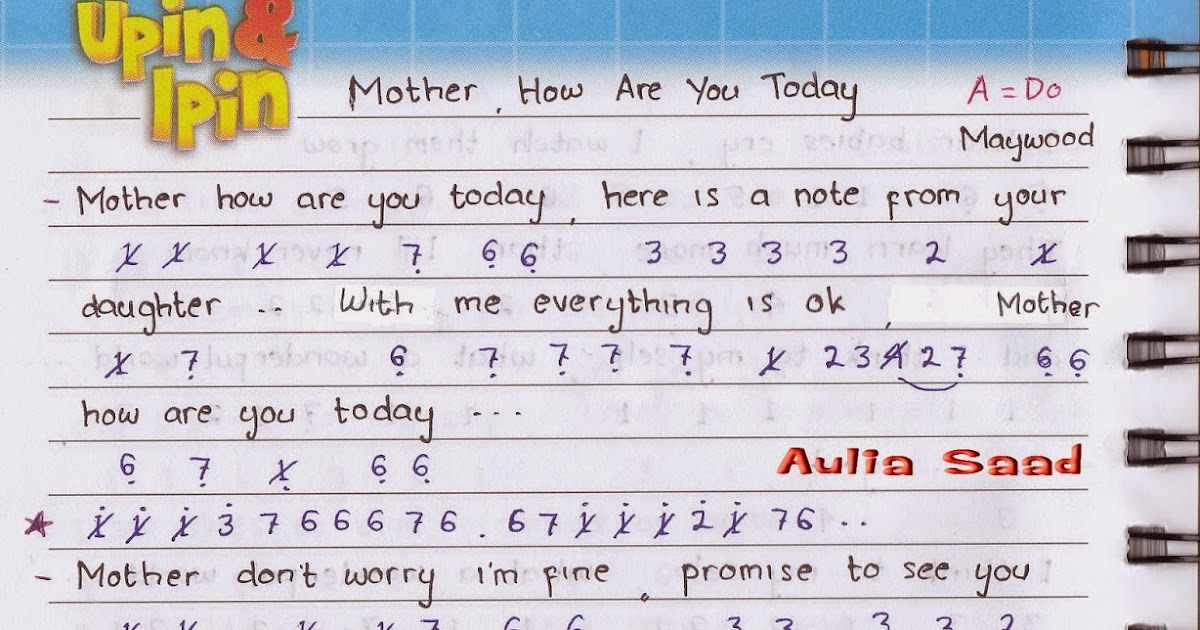 Upin &
Ipin
Mother, How Are You Today A = Do
Maywood
- Mother how are you today, here is a note from your
1̸ 1̸ 1̸ 1̸ 7̣ 6̣ 6̣ 3 3 3 3 2 1̸
daughter .. With me everything is ok, Mother
1̸ 7̣ 6̣ 7̣ 7̣ 7̣ 7̣ 1̸ 2 3 4̸ 2 7̣ 6̣ 6̣
how are you today ...
6̣ 7̣ 1̸ 6̣ 6̣
Aulia Saad
★ 1̸̇ 1̸̇ 1̸̇ 3̇ 7 6 6 6 7 6 . 6 7 1̸̇ 1̸̇ 1̸̇ 2̇ 1̸̇ 7 6 ..
- Mother don't worry i'm fine, promise to see you